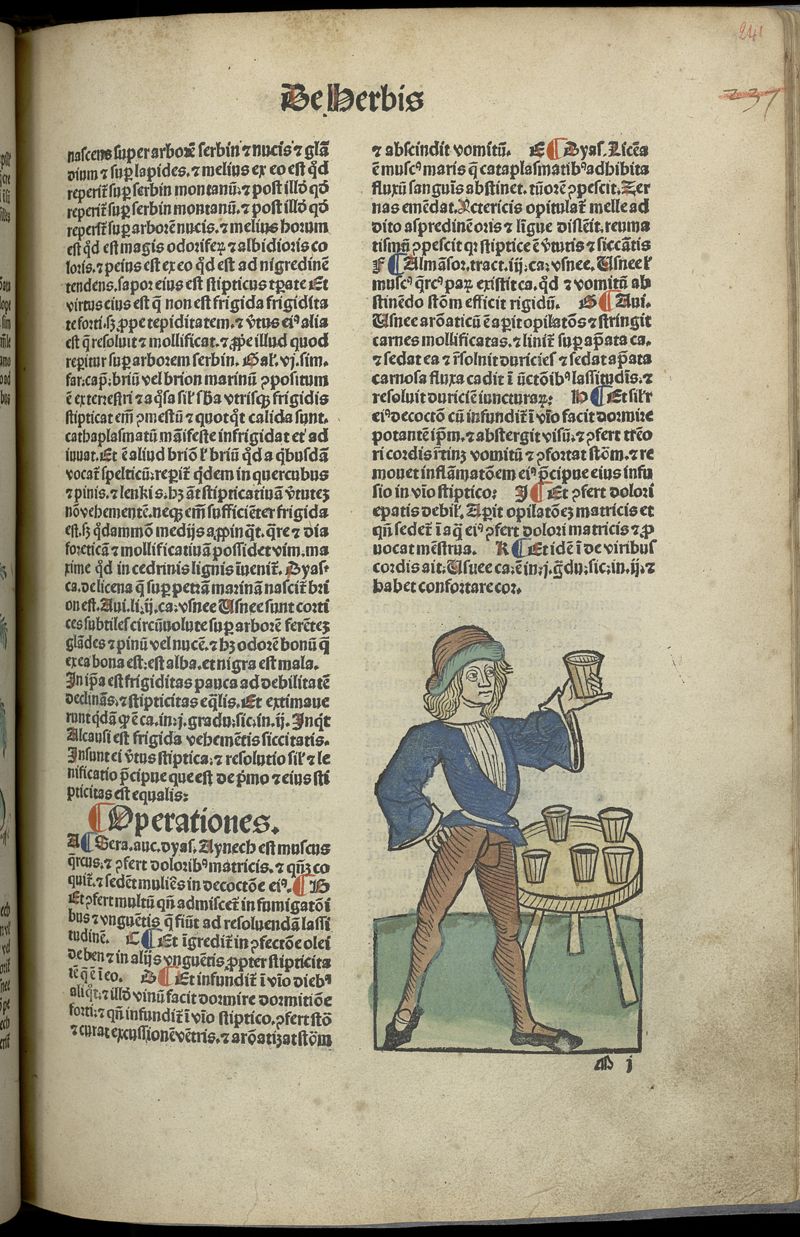 241
237
De Herbis
nascens super arborē serbin ⁊ nucis ⁊ glā
dium ⁊ suꝑ lapides. ⁊ melius ex eo est qd̄
reperit̄ suꝑ serbin montanū: ⁊ post illō qō
reperit̄ suꝑ serbin montanū. ⁊ post illō qō
reperit̄ suꝑ arborē nucis. ⁊ melius horum
est qd̄ est magis odoriferꝫ ⁊ albidioris co
loris. ⁊ peius est ex eo qd̄ est ad nigredinē
tendens. sapor eius est stipticus tꝑate Et
virtus eius est q̄ non est frigida frigidita
te forti. sꝫ ꝓpe tepiditatem. ⁊ v̄tus eiꝰ alia
est q̄ resoluit ⁊ mollificat. ⁊ ꝓpe illud quod
reperitur suꝑ arborem serbin. Gal̄. vj. sim.
far. cap: briū vel brion marinū ꝯpositum
ē ex terrestri ⁊ aq̄sa sil̄ sb̄a vtrisqꝫ frigidis
stipticat em̄ ꝯmestū ⁊ quotqt̄ calida sunt.
cathaplasmatū māifeste infrigidat et ad
iuuat. Et ē aliud briō l̄ briū qd̄ a qb̄usdā
vocat̄ spelticū: reꝑit̄ qd̄em in quercubus
⁊ pinis. ⁊ lenkis. hꝫ āt stipticatiuā v̄tuteꝫ
nō vehementē. neqꝫ em̄ sufficiēter frigida
est. sꝫ qd̄ammō medijs aꝓpinqt̄. qr̄e ⁊ dia
foreticā ⁊ mollificatiuā possidet vim. ma
xime qd̄ in cedrinis lignis īuenit̄. Dyasꝰ
ca. de licena q̄ suꝑ petrā marinā nascit̄ bri
on est. Aui. li. ij. ca: vsnee Usnee sunt corti
ces subtiles circūuolute suꝑ arborē ferētes
glādes ⁊ pinū vel nucē. ⁊ hꝫ odorē bonū q̄
ex ea bona est: est alba. et nigra est mala.
In ip̄a est frigiditas pauca ad debilitatē
declinās. ⁊ stipticitas eq̄lis. Et extimaue
runt qd̄ā ꝙ ē ca. in. j. gradu: sic. in. ij. Inqt̄
Alcansi est frigida vehemētis siccitatis.
Insunt ei v̄tus stiptica: ⁊ resolutio sil̄ ⁊ le
nificatio p̄cipue que est de p̄mo ⁊ eius sti
pticitas est equalis:
¶ Operationes.
A ¶ Sera. auc. dyas. Aynech est muscus
qr̄cus: ⁊ ꝯfert doloribꝰ matricis. ⁊ qn̄ꝫ co
quit̄. ⁊ sedēt mulieēs in decoctōe eiꝰ. ¶ B
Et ꝯfert multū qn̄ admiscet̄ in fumigatōi
bus ⁊ vnguētis q̄ fiūt ad resoluendā lassi
tudinē. C ¶ Et īgredit̄ in ꝯfectōe olei
de ben ⁊ in alijs vnguētis ꝓpter stipticita
tē q̄ ē ī eo. D ¶ Et infundit̄ ī vīo diebꝰ
aliqt̄. ⁊ illō vinū facit dormire dormitiōe
forti: ⁊ qn̄ infundit̄ ī vīo stiptico. ꝯfert stō
⁊ curat excussionē vētris. ⁊ arōatiꝫat stōm
⁊ abscindit vomitū. E ¶ Dyas. Licēa
ē muscꝰ maris q̄ cataplasmatibꝰ adhibita
fluxū sanguīs abstinet. tūorē ꝯpescit. Zer
nas emēdat. Ictericis opitulat̄ melle ad
dito aspredinē oris ⁊ līgue disſēit. reuma
tismū ꝯpescit qr stiptice ē v̄tutis ⁊ siccātis
F ¶ Almāsor. tract. iij: ca: vsnee. Usnee l̄
muscꝰ qr̄cꝰ paꝝ existit ca. qd̄ ⁊ vomitū ab
stinēdo stōm efficit rigidū. G ¶ Aui.
Usnee arōaticū ē aꝑit opilatōs ⁊ stringit
carnes mollificatas. ⁊ linit̄ suꝑ aꝑata ca.
⁊ sedat ea ⁊ r̄soluit duricies ⁊ sedat aꝑata
carnosa fluxa cadit ī vnctōibꝰ lassitudīs. ⁊
resoluit duriciē iuncturaꝝ: H ¶ Et sil̄r
eiꝰ decoctō cū infundit̄ ī vīo facit dormire
potantē ip̄m. ⁊ abstergit visū. ⁊ ꝯfert tr̄eo
ri cordis r̄tinꝫ vomitū ⁊ ꝯfortat stōm. ⁊ re
mouet inflāmatōem eiꝰ p̄cipue eius infu
sio in vīo stiptico: I ¶ Et ꝯfert dolori
epatis debil̄. Aꝑit opilatōeꝫ matricis et
qn̄ sedet̄ ī aq̄ eiꝰ ꝯfert dolori matricis ⁊ ꝓ
uocat mēstrua. K ¶ Et idē ī de viribus
cordis ait. Usuee ca: ē in. j. gd̄u: sic. in. ij. ⁊
habet confortare cor.
M j